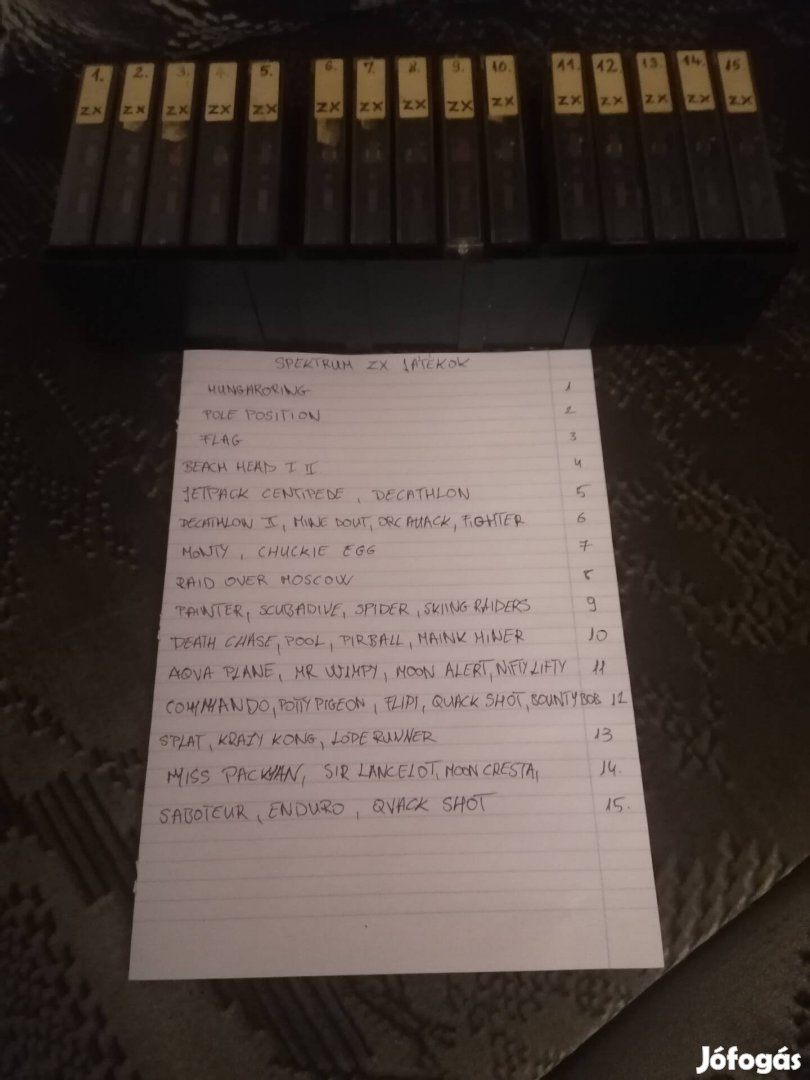 1. 2. 3. 4. 5. 6. 7. 8. 9. 10. 11. 12. 13. 14. 15.
ZX ZX ZX ZX ZX ZX ZX ZX ZX ZX ZX ZX ZX ZX ZX
SPEKTRUM ZX JÁTÉKOK
HUNGARORING 1
POLE POSITION 2
FLAG 3
BEACH HEAD I II 4
JETPACK CENTIPEDE, DECATHLON 5
DECATHLON II, MINE DOUT, ORC AUACK, FIGHTER 6
MONTY, CHUCKIE EGG 7
RAID OVER MOSCOW 8
PAINTER, SCUBADIVE, SPIDER, SKIING RAIDERS 9
DEATH CHASE, POOL, PIRBALL, MAINK MINER 10
AQVA PLANE, MR WIMPY, MOON ALERT, NIFTY LIFTY 11
COMMANDO, POTTY PIGEON, FLIPI, QUACK SHOT, BOUNTY BOB 12
SPLAT, KRAZY KONG, LODE RUNNER 13
MISS PACKMAN, SIR LANCELOT, MOON CRESTA, 14.
SABOTEUR, ENDURO, QVACK SHOT 15.
Jófogás